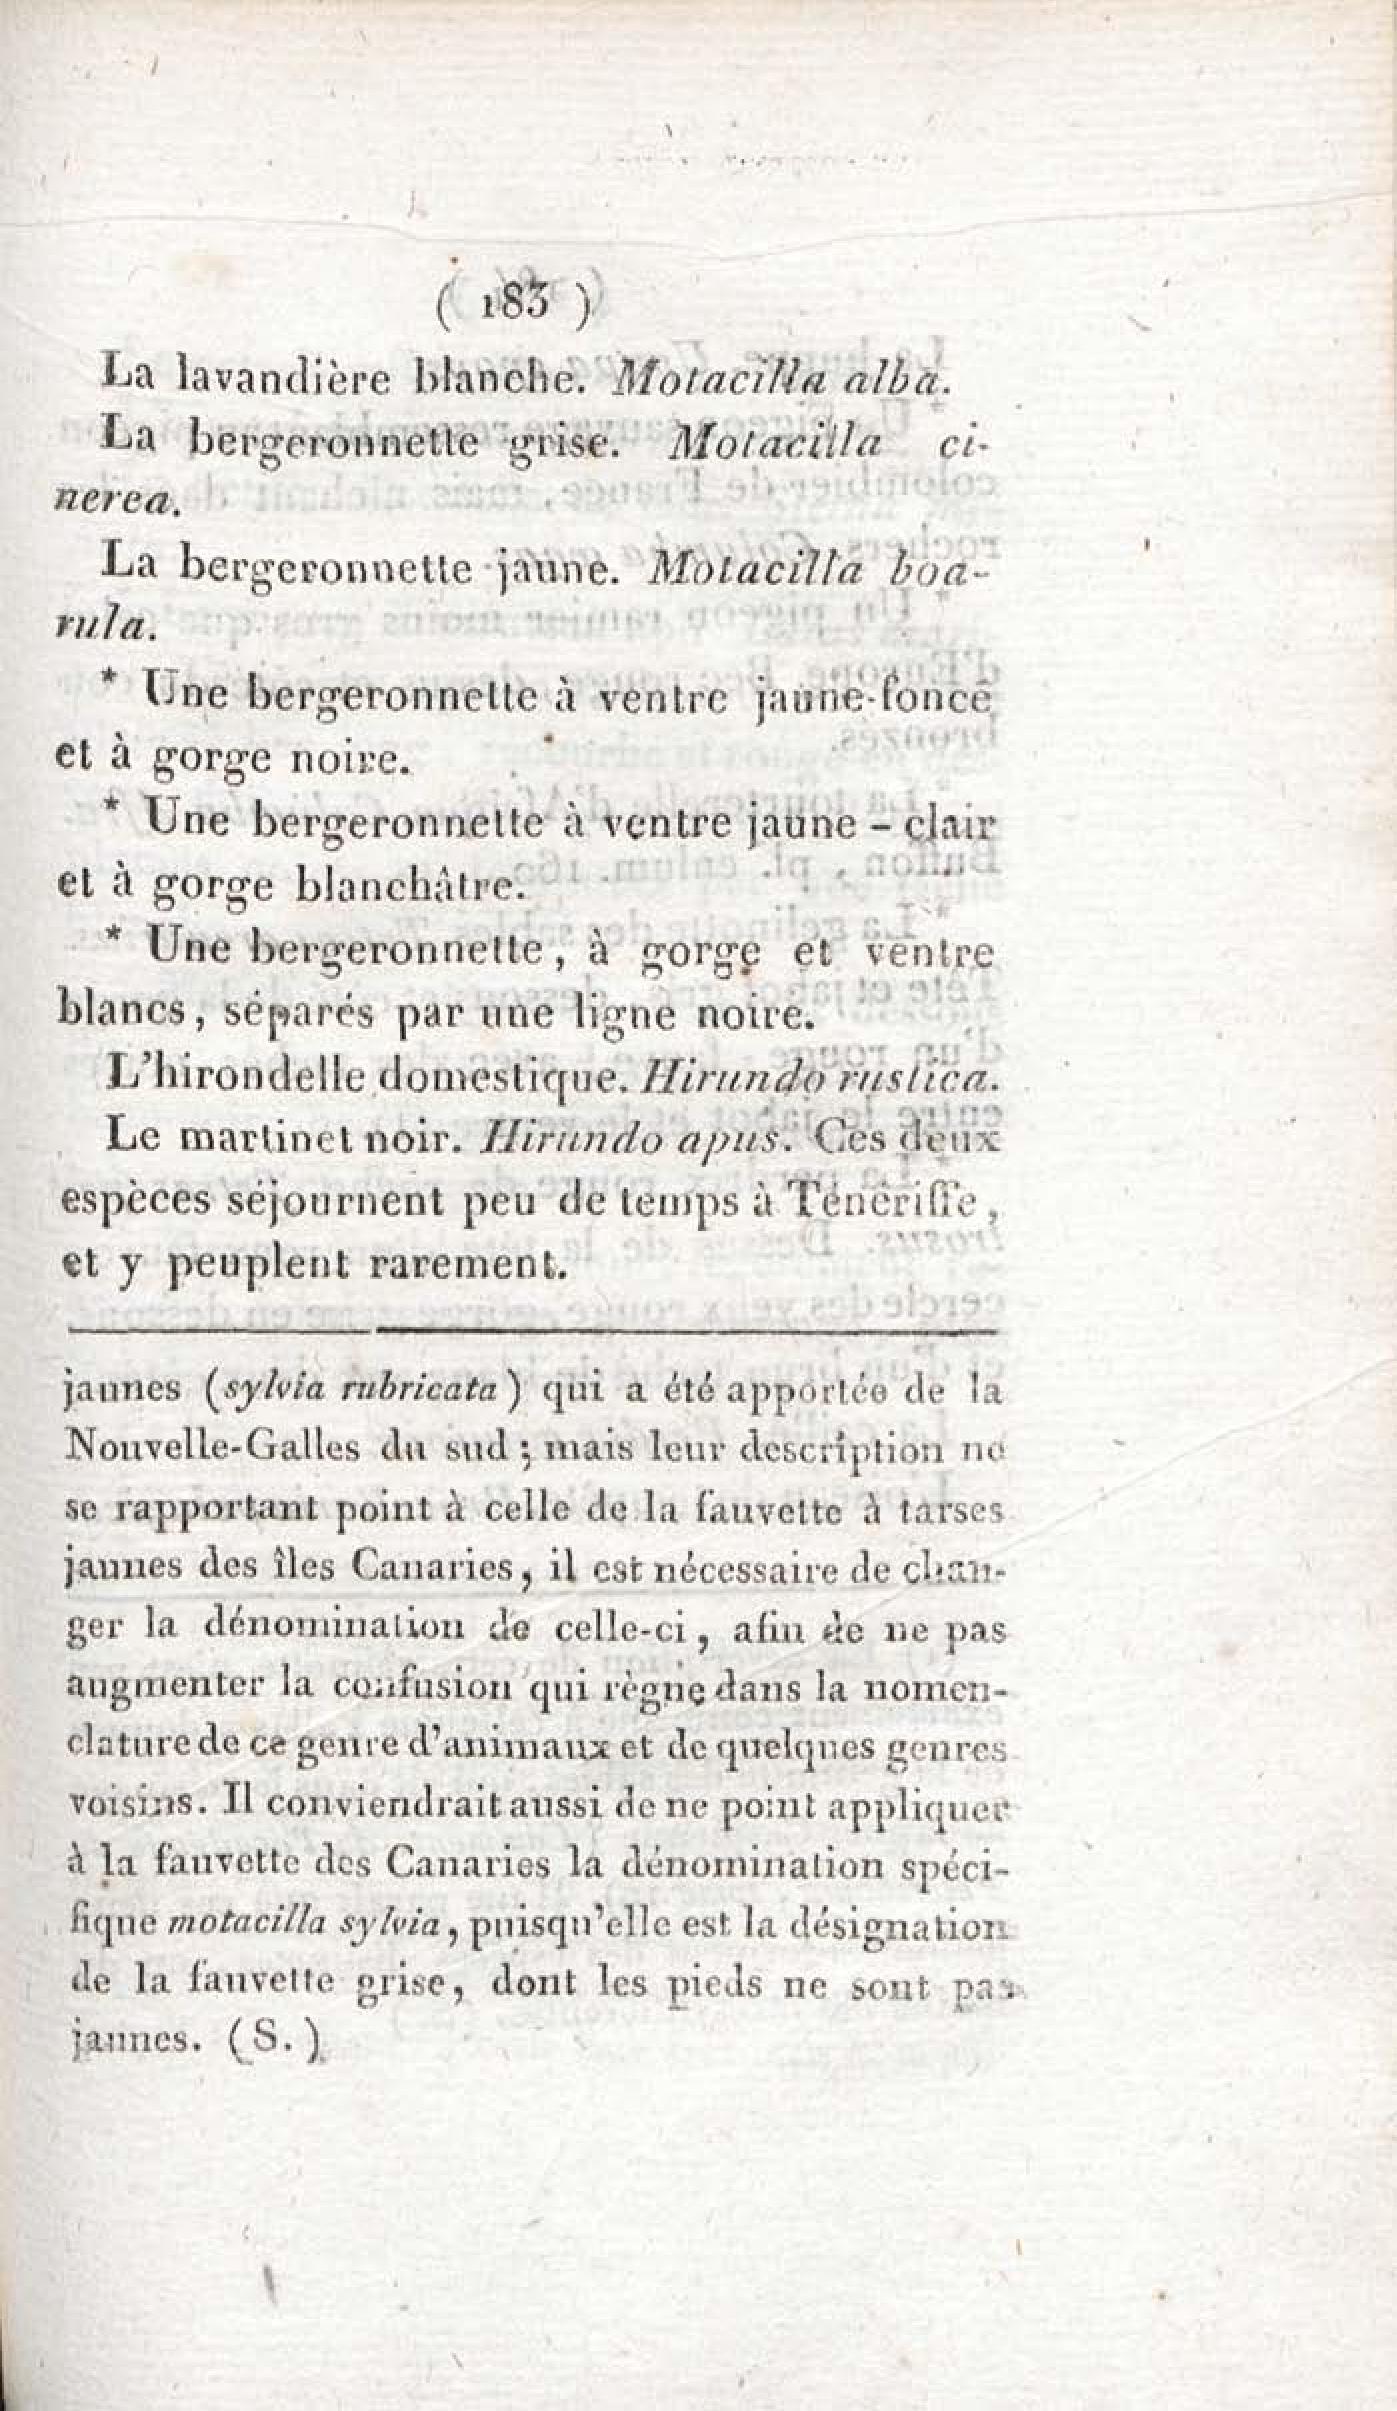 ( 183 )
La lavandière blanche. Motacilla alba.
La bergeronnette grise. Motacilla ci-
nerea.
La bergeronnette jaune. Motacilla boa-
rula.
* Une bergeronnette à ventre jaune-foncé
et à gorge noire.
* Une bergeronnette à ventre jaune-clair
et à gorge blanchâtre.
* Une bergeronnette, à gorge et ventre
blancs, séparés par une ligne noire.
L'hirondelle domestique. Hirundo rustica.
Le martinet noir. Hirundo apus. Ces deux
espèces séjournent peu de temps à Ténériffe,
et y peuplent rarement.
jaunes (sylvia rubricata) qui a été apportée de la
Nouvelle-Galles du sud; mais leur description ne
se rapportant point à celle de la fauvette à tarses
jaunes des îles Canaries, il est nécessaire de chan-
ger la dénomination de celle-ci, afin de ne pas
augmenter la confusion qui règne dans la nomen-
clature de ce genre d'animaux et de quelques genres
voisins. Il conviendrait aussi de ne point appliquer
à la fauvette des Canaries la dénomination spéci-
fique motacilla sylvia, puisqu'elle est la désignation
de la fauvette grise, dont les pieds ne sont pas
jaunes. (S.)